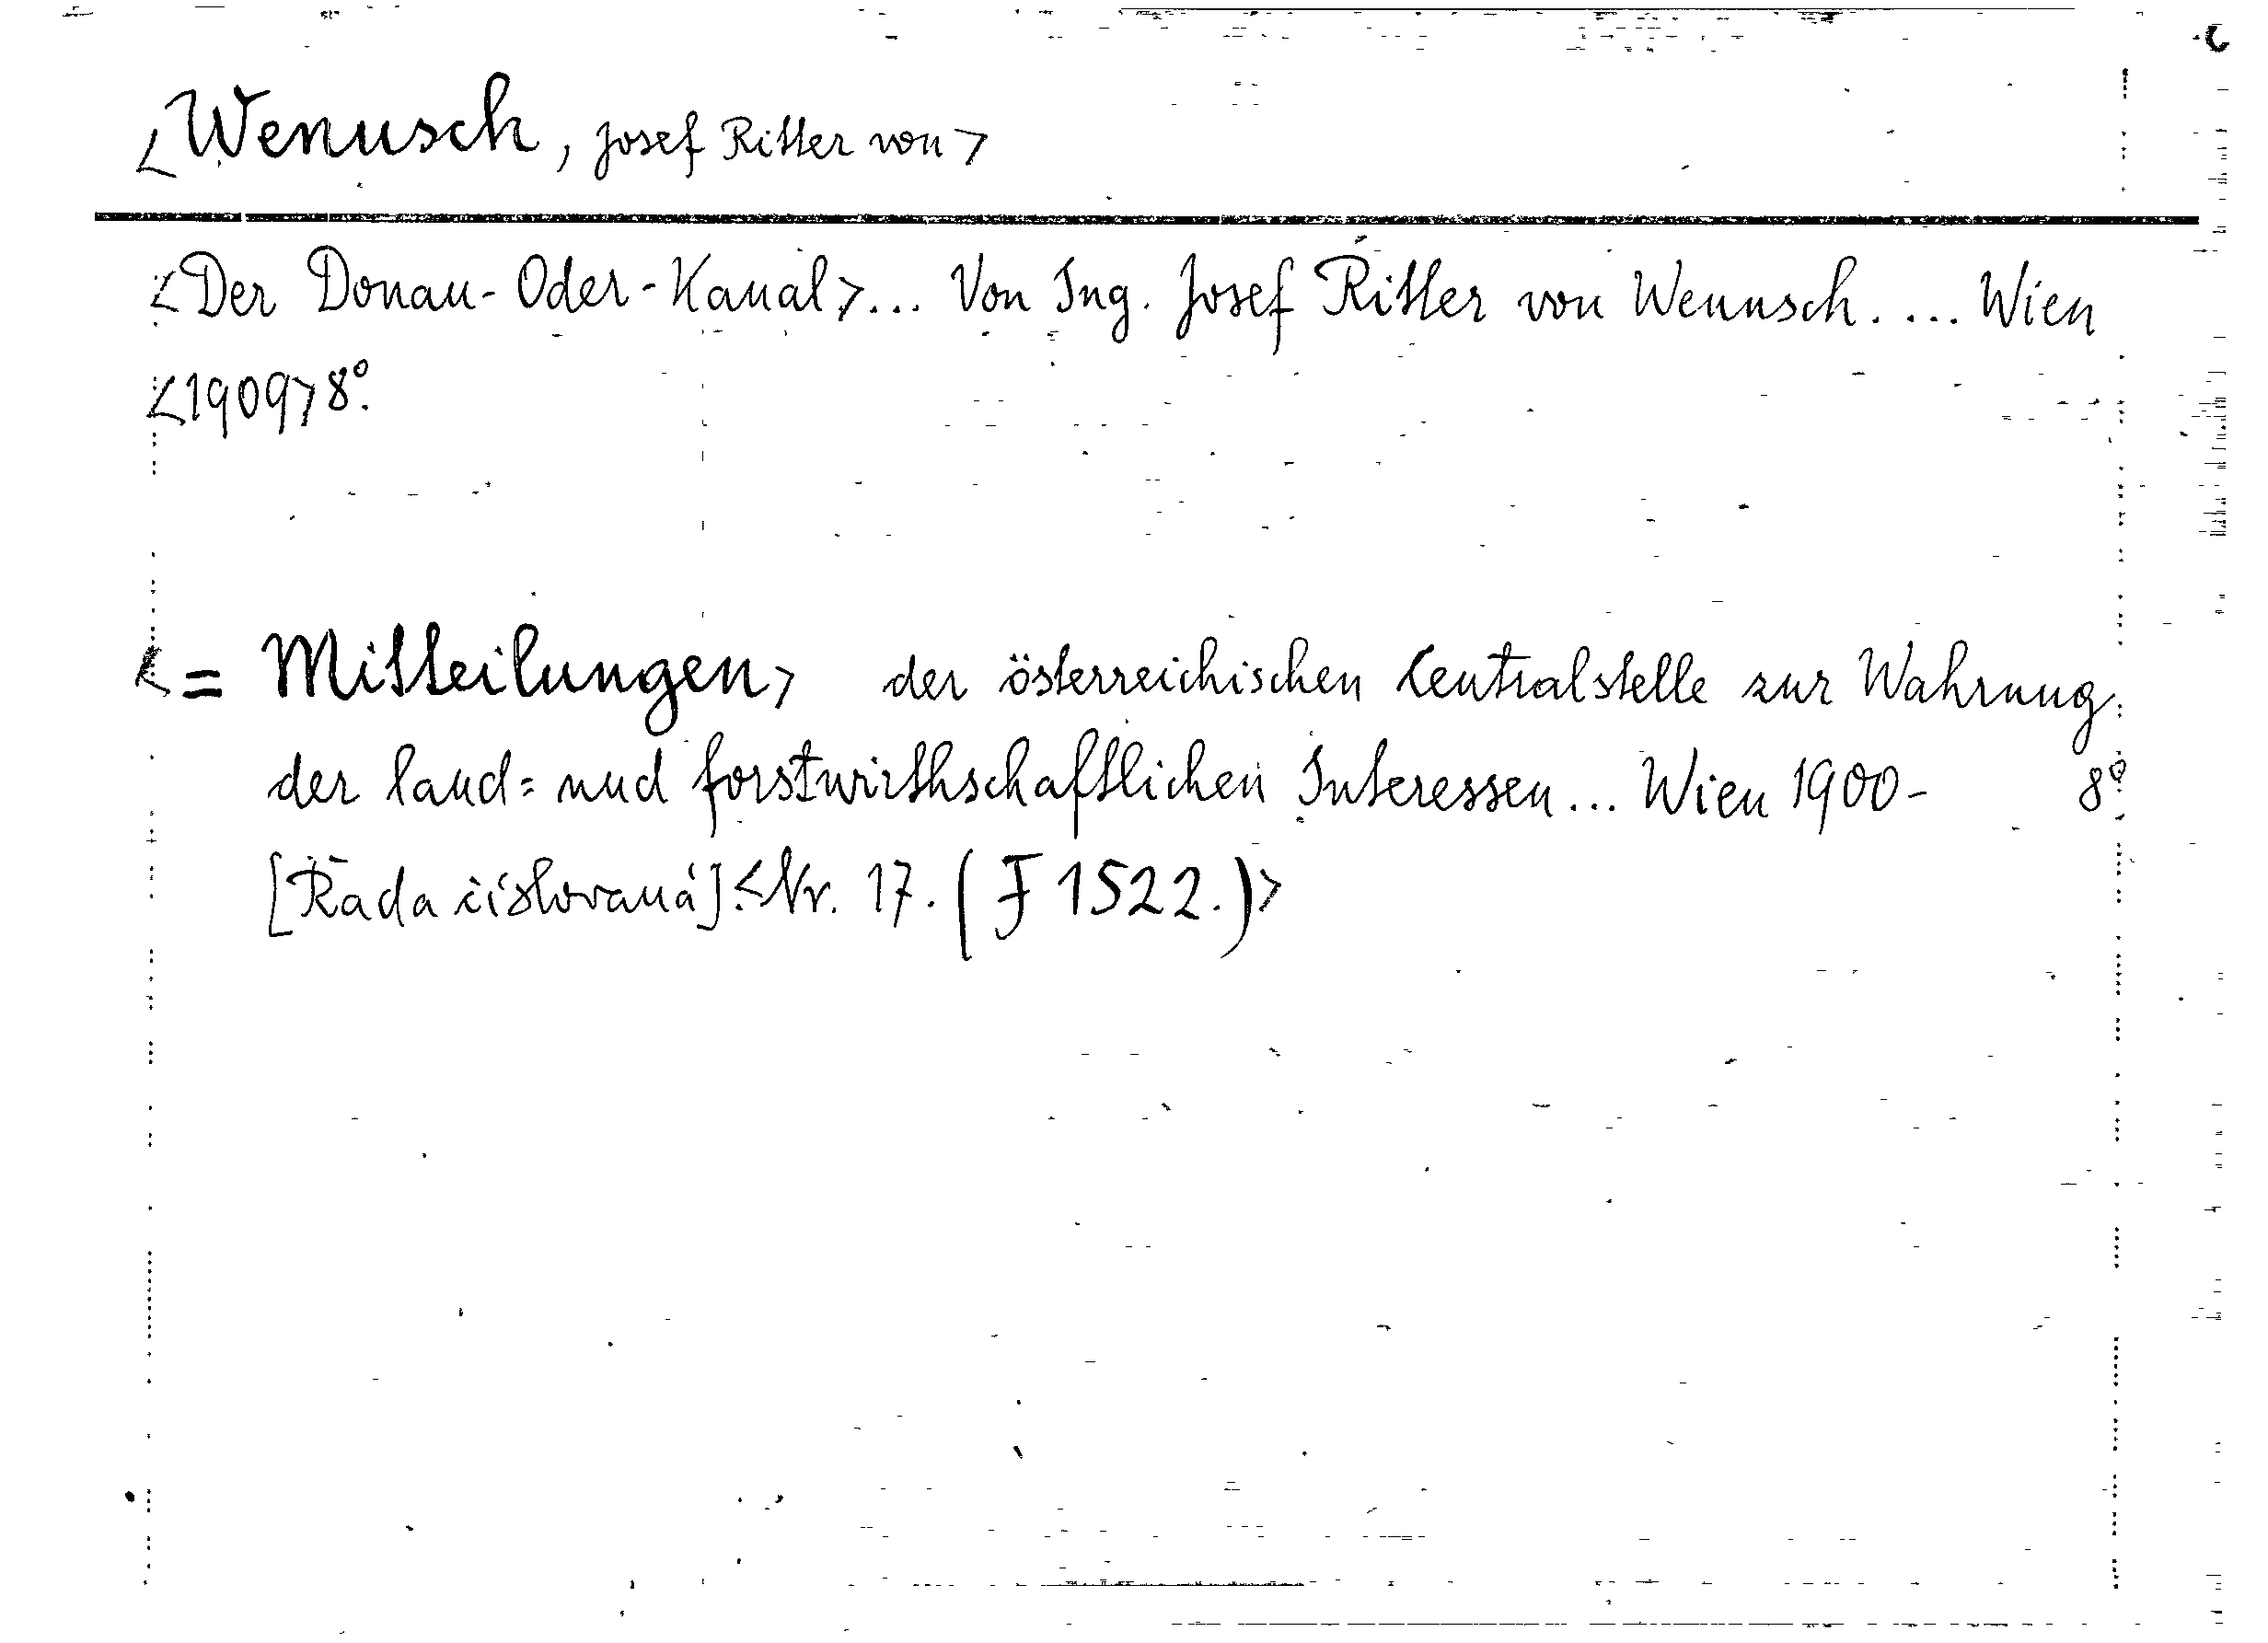 <Wenusch, Josef Ritter von>
<Der Donau-Oder-Kanal>... Von Ing. Josef Ritter von Wenusch.... Wien
<1909> 8°.
<= Mitteilungen> der österreichischen Centralstelle zur Wahrung
der land= und forstwirthschaftlichen Interessen... Wien 1900- 8°
[Řada číslovaná].<Nr. 17. (F 1522.)>